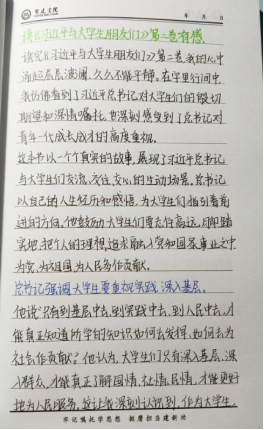 年 月 日
读《习近平与大学生朋友们》第二卷有感
读完《习近平与大学生朋友们》第二卷,我的心中
涌起层层波澜,久久不能平静。在字里行间中
我仿佛看到了习近平总书记对大学生们的殷切
期望和深情嘱托,也深刻感受到了总书记对
青年一代成长成才的高度重视。
这本书以一个个真实的故事,展现了习近平总书记
与大学生们交流、交往、交心的生动场景。总书记
以自己的人生经历和感悟,为大学生们指引着前
进的方向。他鼓励大学生们要志存高远、脚踏
实地,把个人的理想追求融入党和国家事业之中
为党、为祖国、为人民多作贡献。
总书记强调大学生要重视实践,深入基层。
他说“只有到基层中去,到实践中去,到人民中去,才
能真正知道所学的知识如何去发挥、如何去为
社会作贡献”。他认为,大学生们只有深入基层、深
入群众,才能真正了解国情、社情、民情,才能更好
地为人民服务。这让我深刻认识到,作为大学生,
牢记嘱托学思想 挺膺担当建新功